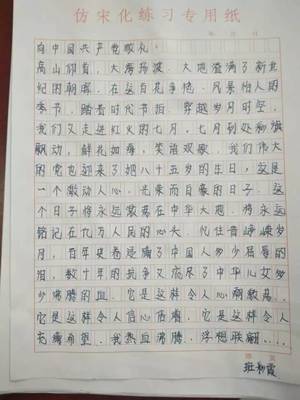 仿宋化练习专用纸
年 月 日
向中国共产党敬礼
高山仰首，大海扬波．大地洒满了新世
纪的朝晖．在这百花争艳．风景怡人的
季节．踏着时代节拍．穿越岁月时空．
我们又走进红火的七月．七月到处彩旗
飘动，鲜花如海，笑语欢歌．我们伟大
的党也迎来了她八十五岁的生日，这是
一个激动人心．光荣而自豪的日子．这
个日子将永远激荡在中华大地．将永远
铭记在九万人民的心头．忆往昔峥嵘岁
月，百年史卷
了中国人多少屈辱的
泪，数十年的抗争又
了中华儿女多
少沸腾的血．它是这样令人心潮激荡．
它是这样令人信心百倍．它是这样令人
充满希望．我热血沸腾．浮想联翩....
班
霞